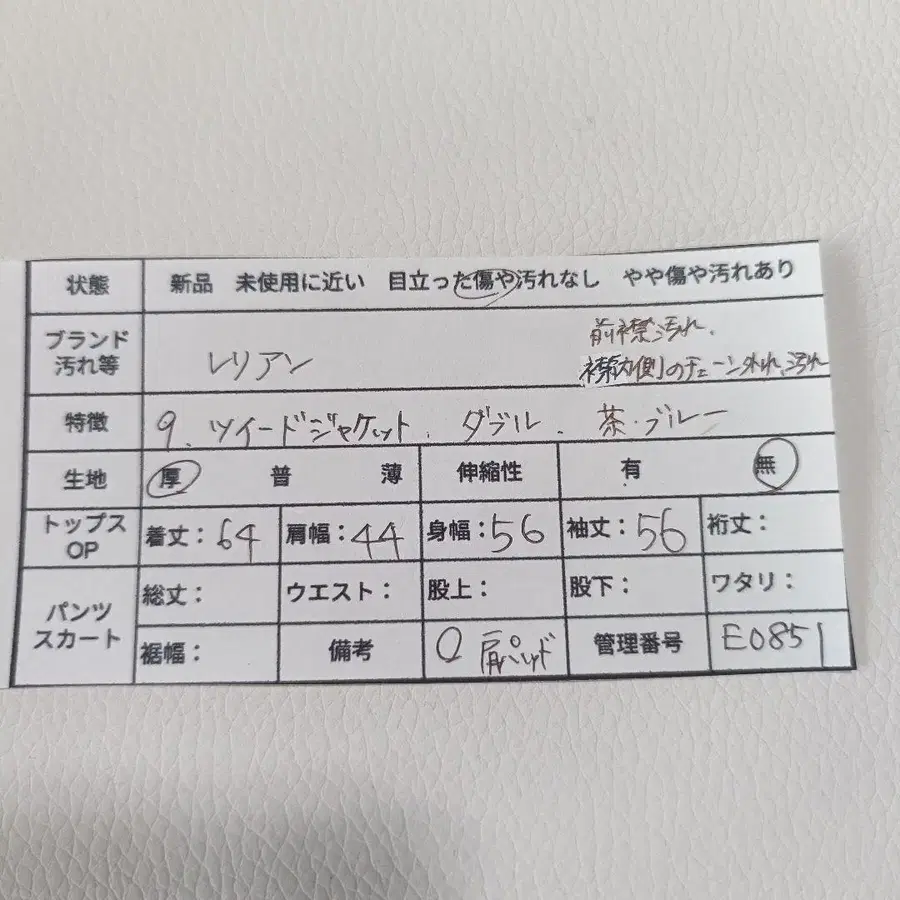 状態 新品 未使用に近い 目立った傷や汚れなし やや傷や汚れあり
ブランド 前襟汚れ、
汚れ等 レリアン 襟内側のチェーン外れ、汚れ
特徴 9、ツイードジャケット、ダブル、茶・ブルー
生地 厚 普 薄 伸縮性 有 無
トップス
OP 着丈：64 肩幅：44 身幅：56 袖丈：56 裄丈：
パンツ
スカート
総丈： ウエスト： 股上： 股下： ワタリ：
裾幅： 備考 〇 肩パッド 管理番号 E0851